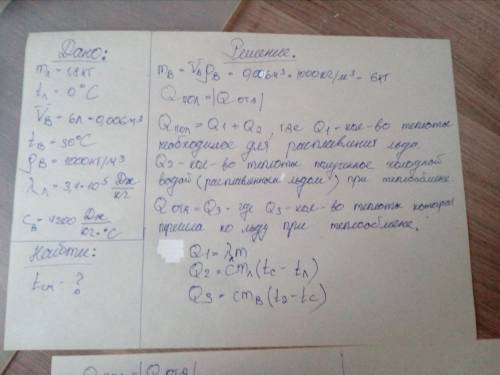 Дано:
mл = 1,8 кг
tл = 0°С
Vв = 6л = 0,006м³
tв = 90°С
ρв = 1000кг/м³
λл = 3,4·10⁵ Дж/кг
cв = 4200 Дж/кг·°С
Найти:
tсм - ?
Решение.
mв = Vвρв = 0,006м³·1000кг/м³ = 6кг
Qпол = |Qотд|
Qпол = Q1 + Q2, где Q1 - кол-во теплоты
необходимое для расплавления льда.
Q2 - кол-во теплоты полученное холодной
водой (расплавленным льдом) при теплообмене
Qотд = Q3 - где Q3 - кол-во теплоты которая
пришла ко льду при теплообмене.
Q1 = λлm
Q2 = cmл(tс - tл)
Q3 = cmв(t2 - tс)
Qпол = |Qотд|